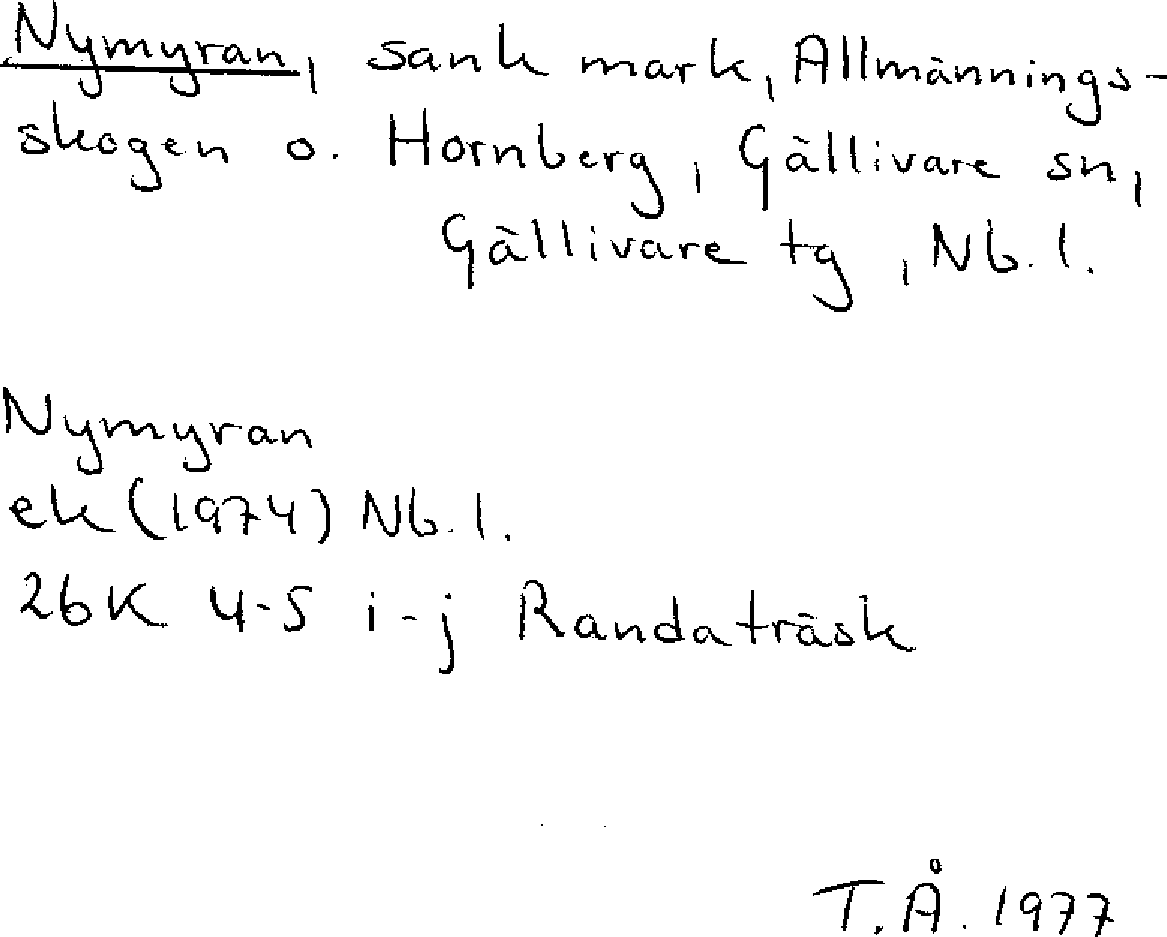 Nymyran, sank mark, Allmännings-
skogen o. Hornberg, Gällivare sn,
Gällivare tg, Nb. l.
Nymyran
ek (1974) Nb. l.
26K 4-5 i-j Randaträsk
T.Å. 1977